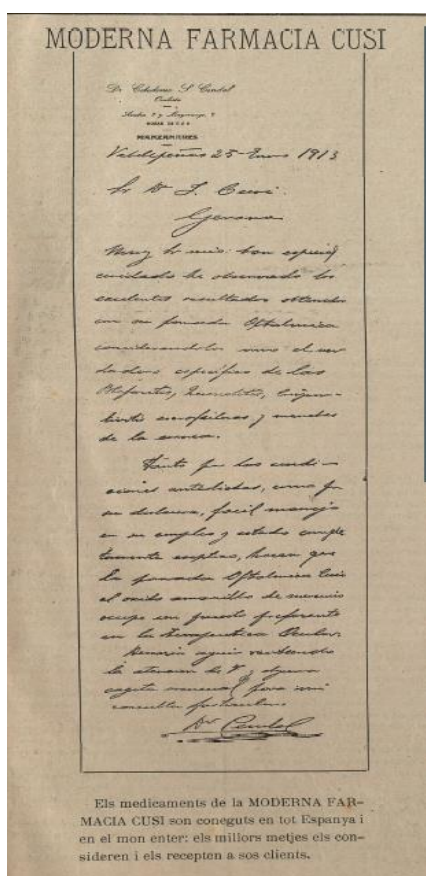 MODERNA FARMACIA CUSI
Dr.
Oculista
MANZANARES
Valdepeñas 25 Enero 1913
Sr Dn J. Cusí.
Gerona
Muy Sr mio: con especial
cuidado he observado los
excelentes resultados obtenidos
con su pomada Oftalmica
considerandola como el ver
dadero especifico de las
Blefaritis, Queratitis, Conjun-
tivitis escrofulosas y
de la cornea.
Tanto por las condi-
ciones antedichas, como por
su dulzura, facil manejo
en su empleo y estado comple
tamente aseptico, hacen que
la pomada Oftalmica Cusi
al oxido amarillo de mercurio
ocupe un puesto preferente
en la Terapeutica Ocular.
seguir
la atencion de V. y alguna
cajita mensual para mi
consulta particular.
Dr
Els medicaments de la MODERNA FAR-
MACIA CUSI son coneguts en tot Espanya i
en el mon enter: els millors metjes els con-
sideren i els recepten a sos clients.